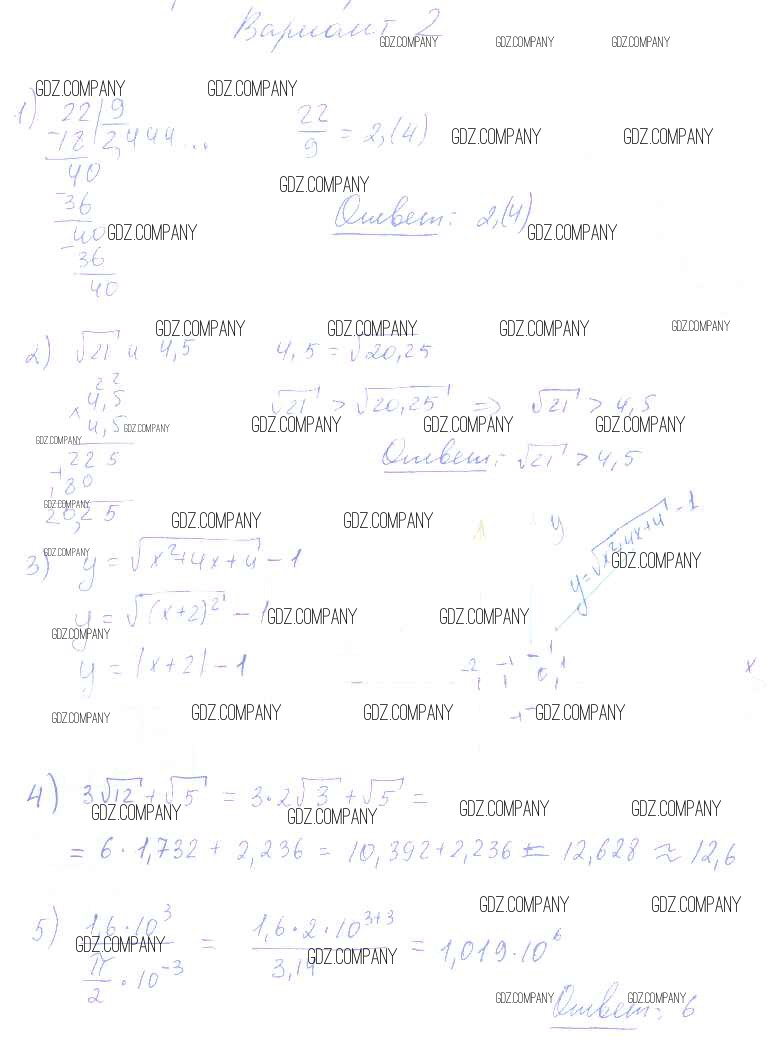 Вариант 2
GDZ.COMPANY GDZ.COMPANY GDZ.COMPANY
GDZ.COMPANY GDZ.COMPANY
1) 22 | 9
-18 2,444... 22/9 = 2,(4) GDZ.COMPANY GDZ.COMPANY
40
GDZ.COMPANY
-36
Ответ: 2,(4)
40 GDZ.COMPANY GDZ.COMPANY
-36
40
GDZ.COMPANY GDZ.COMPANY GDZ.COMPANY GDZ.COMPANY
2) √21 и 4,5 4,5 = √20,25
2 2
× 4,5 √21 > √20,25 => √21 > 4,5
4,5 GDZ.COMPANY GDZ.COMPANY GDZ.COMPANY GDZ.COMPANY
GDZ.COMPANY
+ 225 Ответ: √21 > 4,5
180
GDZ.COMPANY
20,25 GDZ.COMPANY GDZ.COMPANY y
y=√x²+4x+4 - 1
GDZ.COMPANY GDZ.COMPANY
3) y = √x²+4x+4 - 1
y = √(x+2)² - 1 GDZ.COMPANY GDZ.COMPANY
GDZ.COMPANY
y = |x+2| - 1
-2 -1 0 1 x
GDZ.COMPANY GDZ.COMPANY GDZ.COMPANY -1 GDZ.COMPANY
4) 3√12 + √5 = 3·2√3 + √5 =
GDZ.COMPANY GDZ.COMPANY GDZ.COMPANY GDZ.COMPANY
= 6·1,732 + 2,236 = 10,392+2,236 = 12,628 ≈ 12,6
GDZ.COMPANY GDZ.COMPANY
5) 1,6·10³ / π/2·10⁻³ = 1,6·2·10³⁺³ / 3,14 = 1,019·10⁶
GDZ.COMPANY GDZ.COMPANY
GDZ.COMPANY GDZ.COMPANY
Ответ: 6